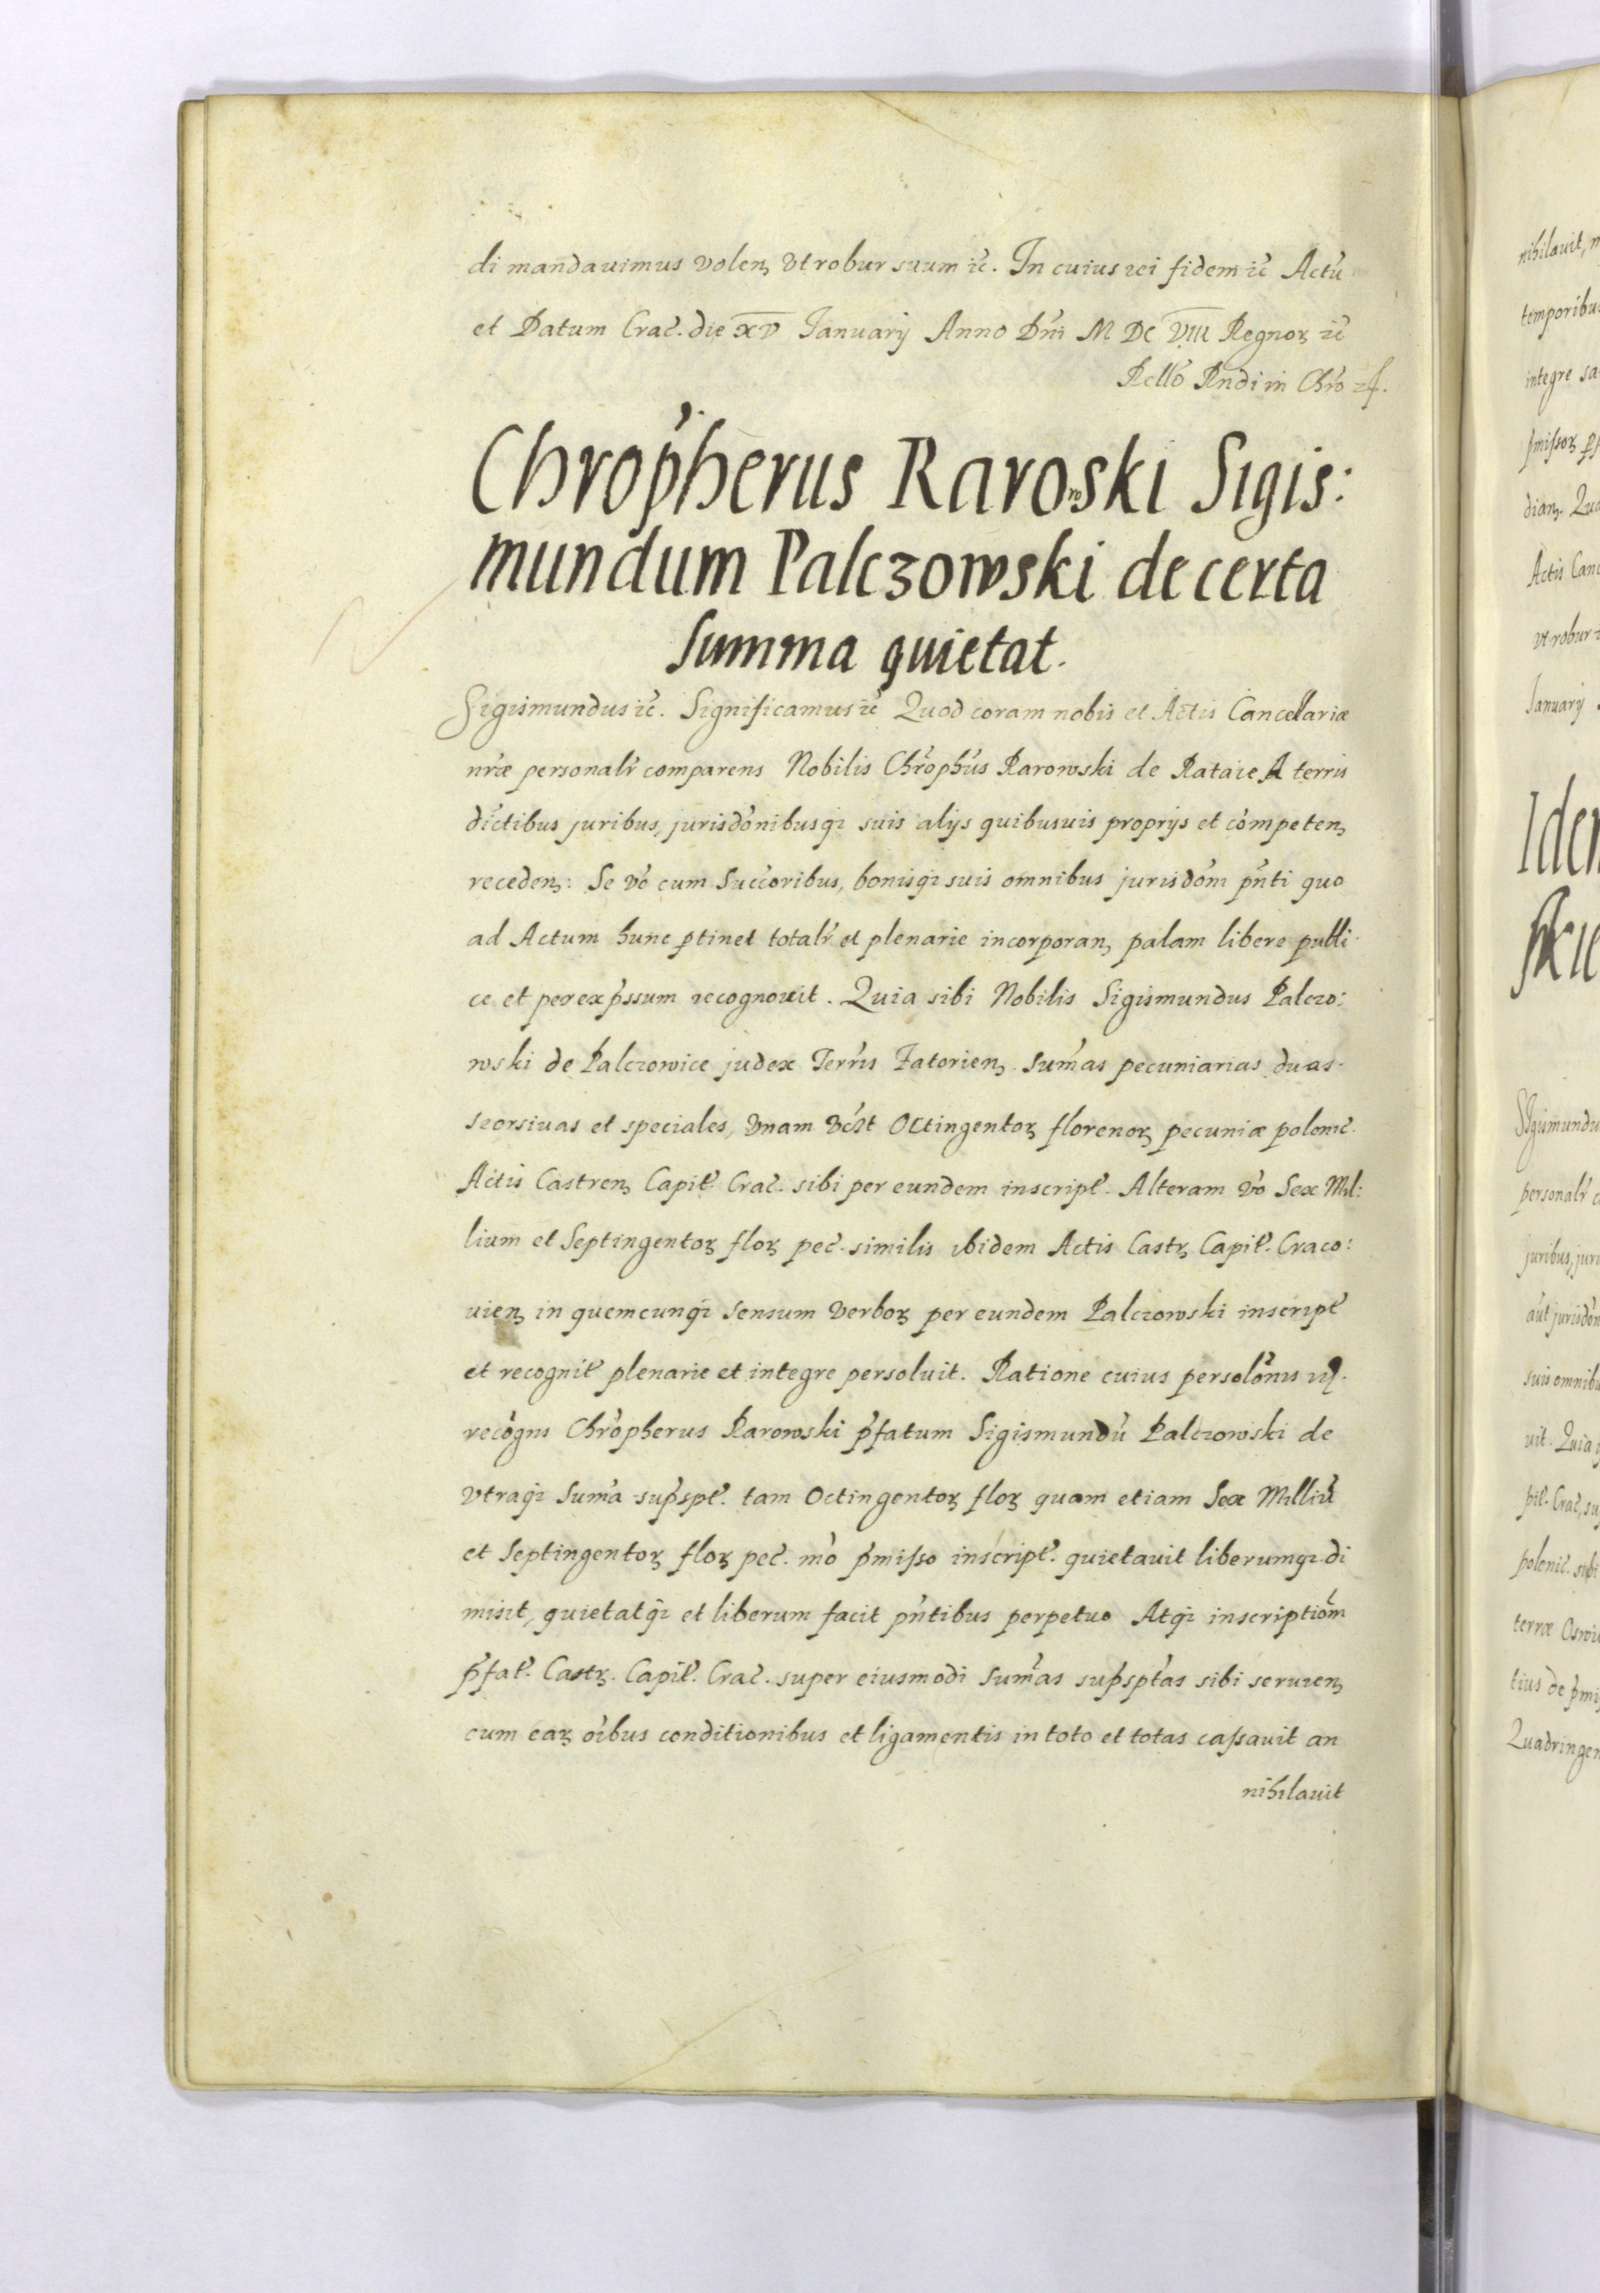 di mandauimus volen ut robur suum ꝛc̃. In cuius rei fidem ꝛc̃ Actũ
et Datum Crac̃. die XV January Anno Dñi M DC VIII Regnoꝝ ꝛc̃
Rello Rndi in Chro
Chropherus Rarowski Sigis:
mundum Palczowski de certa
Summa quietat.
Sigismundus ꝛc̃. Significamus ꝛc̃ Quod coram nobis et Actis Cancellariæ
nr̃æ personalr̃ comparens Nobilis Chrophus Rarowski de Rataie A terris
dictibus juribus, jurisdõnibusqȝ suis alijs quibusuis proprijs et competenȝ
recedenȝ: Se vo cum Succoribus, bonisqȝ suis omnibus jurisdõni pñti quo
ad Actum hunc ꝑtinet totalr̃ et plenarie incorporanȝ palam libere publi
ce et per exp̃ssum recognouit. Quia sibi Nobilis Sigismundus Palczo:
wski de Palczowice judex Terr̃is Zatorienȝ. Sum̃as pecuniarias duas.
seorsiuas et speciales, Vnam vczt Octingentoꝝ florenoꝝ pecuniæ polonic̃.
Actis Castrenȝ Capit̃ Crac̃. sibi per eundem inscript̃. Alteram vo Sex Mil:
lium et Septingentoꝝ floꝝ pec̃. similis ibidem Actis Castrȝ Capit̃. Craco:
uienȝ in quemcunqȝ sensum verboꝝ per eundem Palczowski inscript̃
et recognit̃ plenarie et integre persoluit. Ratione cuius persolõnis
recogns Chropherus Rarowski p̃fatum Sigismundũ Palczowski de
vtraqȝ Sum̃a sup̃spt̃. tam Octingentoꝝ floꝝ quam etiam Sex Milliũ
et Septingentoꝝ floꝝ pec̃. mo p̃misso inscript̃. quietauit liberumqȝ di
misit, quietatqȝ et liberum facit pñtibus perpetuo Atqȝ inscriptiõm
p̃fat̃. Castrȝ. Capit̃. Crac̃. super eiusmodi Sum̃as sup̃sptas sibi seruienȝ
cum eaꝝ oĩbus conditionibus et ligamentis in toto et totas cassauit an
nihilauit
nihilauit,
temporibus
integre sa
p̃missoꝝ
dianȝ. Qua
Actis Canc
vt robur
January
Iden
skie
Sigismundu
personalr̃ c
juribus, juri
aut jurisdõn
suis omnibu
uit. Quia
pit̃. Crac̃, su
polonic̃. sibi
terræ Oswie
tius de p̃mi
Quadringen